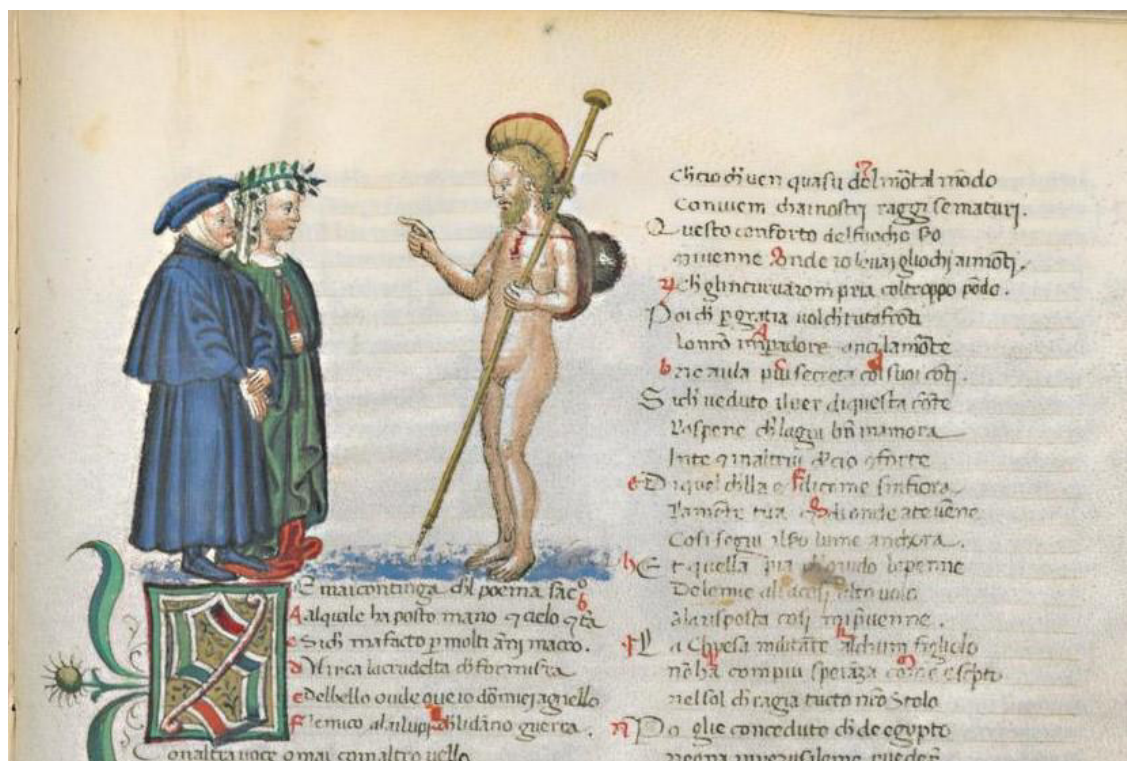 E mai continga chl poema sac°
alquale ha posto mano ⁊ cielo ⁊ tã
Sich mafacto p molti ãni macro.
Vīca la crudelta ch for mi sra
delbello ouile oue io domi agnello
lenico alaj lupi ch lidãno guerra.
Con altra uoce o mai con altro uello
Chcio ch uen quasu dol mõtal mõdo
Conuiem chai nostri raggi se maturi.
Questo conforto del fuocho
mi uenne onde io leuai gliochi ai mõti.
che glincuruarom pria col troppo põdo.
Poi ch p gratia uol ch tu tafrõti
lo nrõ impadore anci la mõte
ne aula piu secreta coi suoi cõti.
Sich ueduto il uer di questa cõte
la spene ch lagiu bñ inamora
Inte ⁊ in altrui di cio cõforte
Di quel chlla e ⁊ dicome sinfiora
la mõte tua onde ate uẽne
Cosi segui lume anchora.
Et quella pia ch penne
Dele mie ali acosi alto uolo
ala risposta cosi mi puenne.
La Chiesa militãte alchum figliolo
nõ ha com piu sperãza come e scpto
nel sol ch ragia tucto nrõ Stolo
Po glie conceduto ch de egypto
uegna in yerusaleme